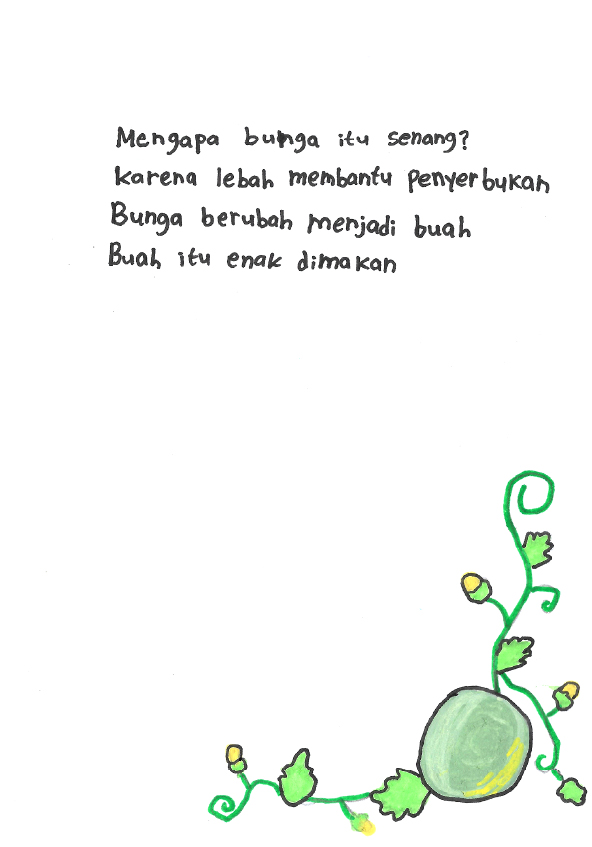 Mengapa bunga itu senang?
karena lebah membantu penyerbukan
Bunga berubah menjadi buah
Buah itu enak dimakan